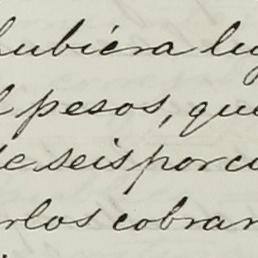 hubiera lu
l pesos, que
de seis por ci
rlos cobrar